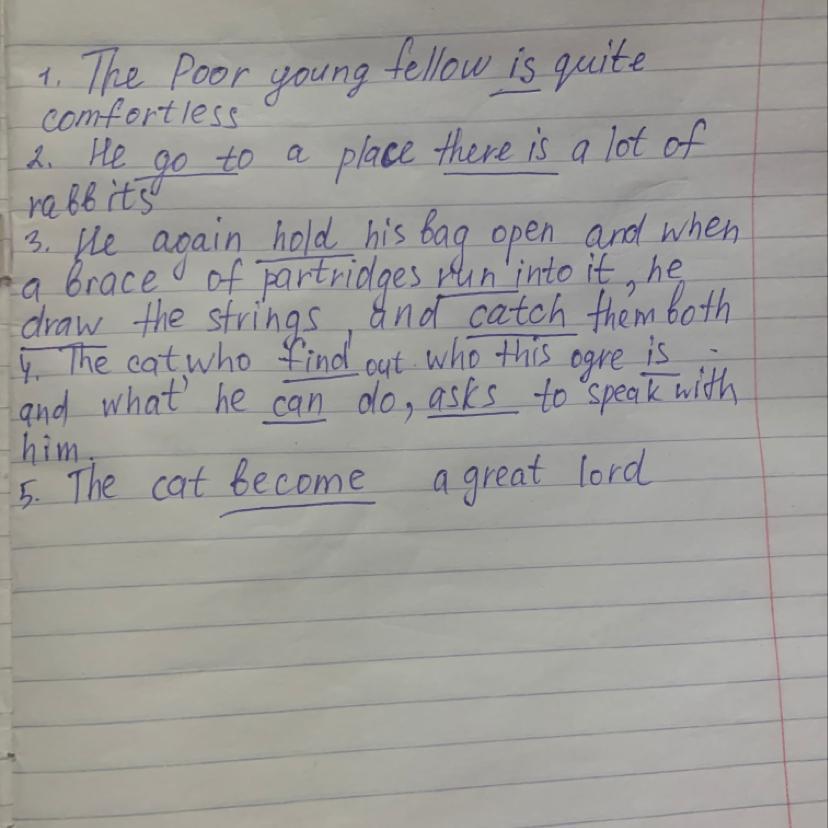 1. The Poor young fellow is quite
comfortless
2. He go to a place there is a lot of
rabbits
3. He again hold his bag open and when
a brace of partridges run into it, he
draw the strings, and catch them both
4. The cat who find out who this ogre is
and what he can do, asks to speak with
him.
5. The cat become a great lord